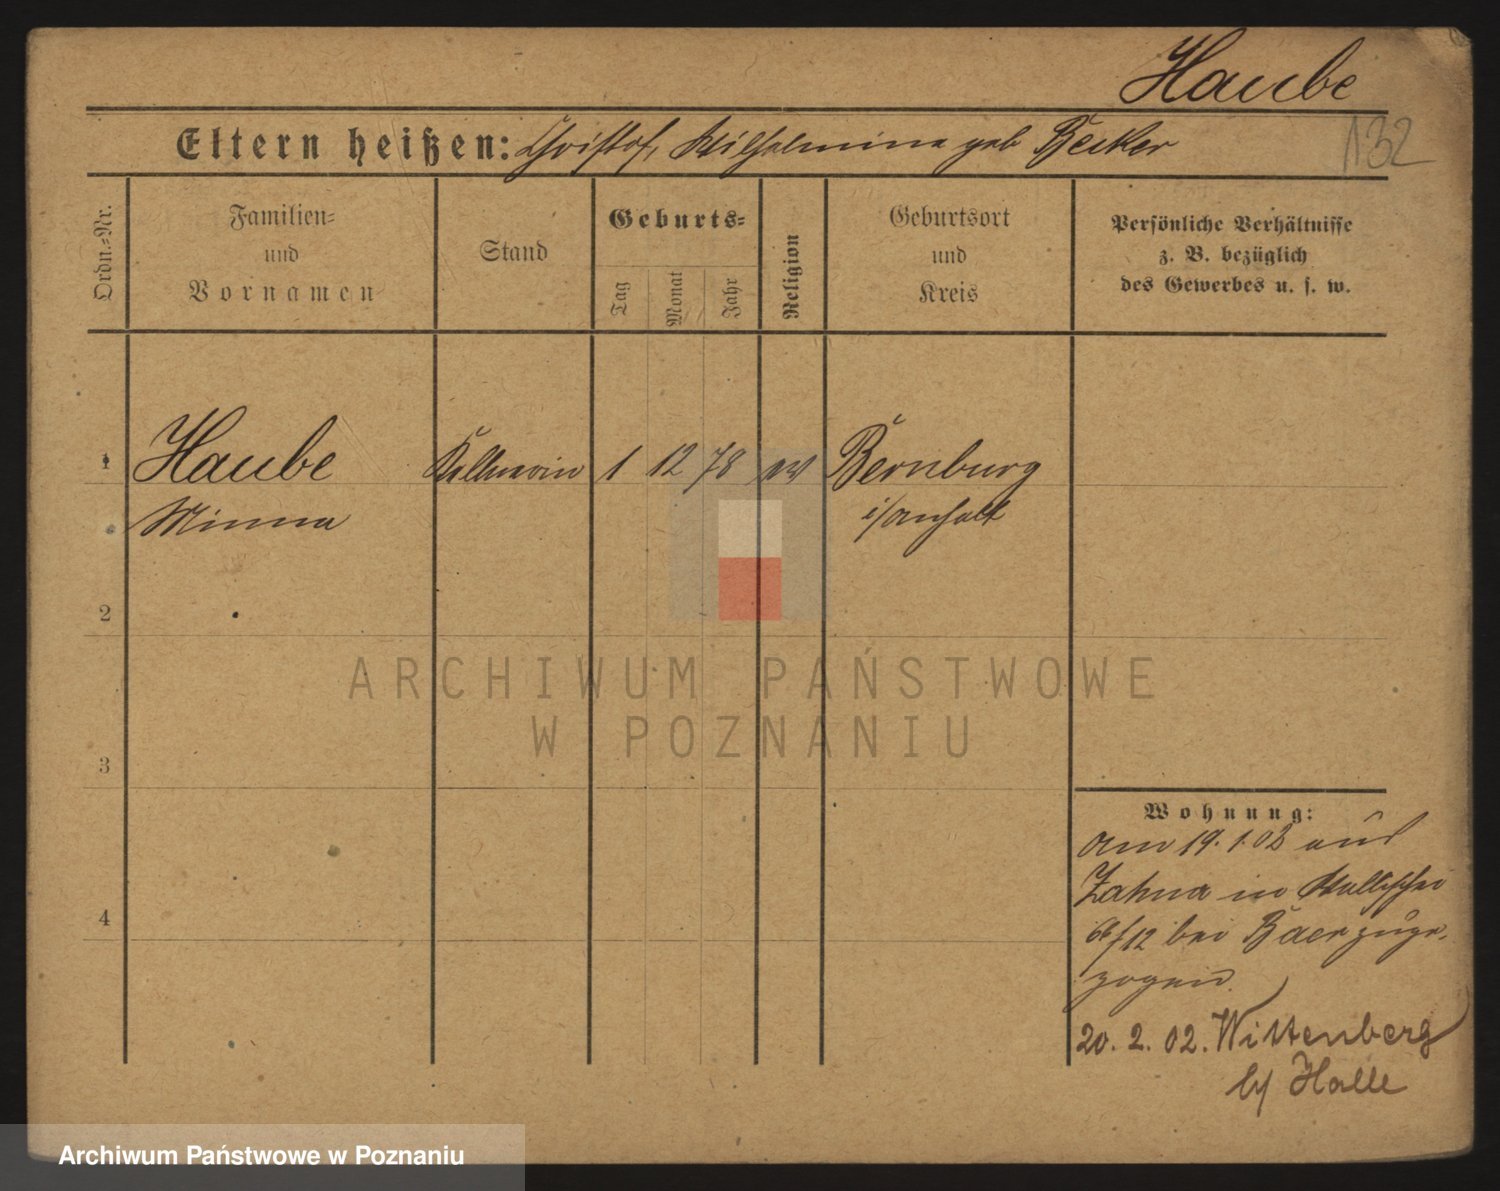 Haube
132
Eltern heißen: Christof, Wilhelmine geb Becker
Ordn.-Nr.
Familien-
und
Vornamen
Stand
Geburts-
Tag
Monat
Jahr
Religion
Geburtsort
und
Kreis
Persönliche Verhältnisse
z. B. bezüglich
des Gewerbes u. s. w.
1 Haube Kellnerin 1 12 78 ev Bernburg
Minna i/Anhalt
2
3
4
Wohnung:
am 19.1.02 aus
Zahna in Wallischei
66/12 bei Baer zuge-
zogen.
20. 2. 02. Wittenberg
b/ Halle
ARCHIWUM PAŃSTWOWE
W POZNANIU
Archiwum Państwowe w Poznaniu